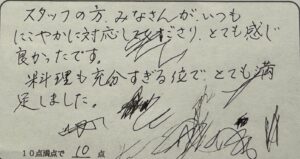 スタッフの方、みなさんが、いつも
にこやかに対応してくださり、とても感じ
良かったです。
料理も充分すぎる位で、とても満
足しました。
10点満点で 10 点